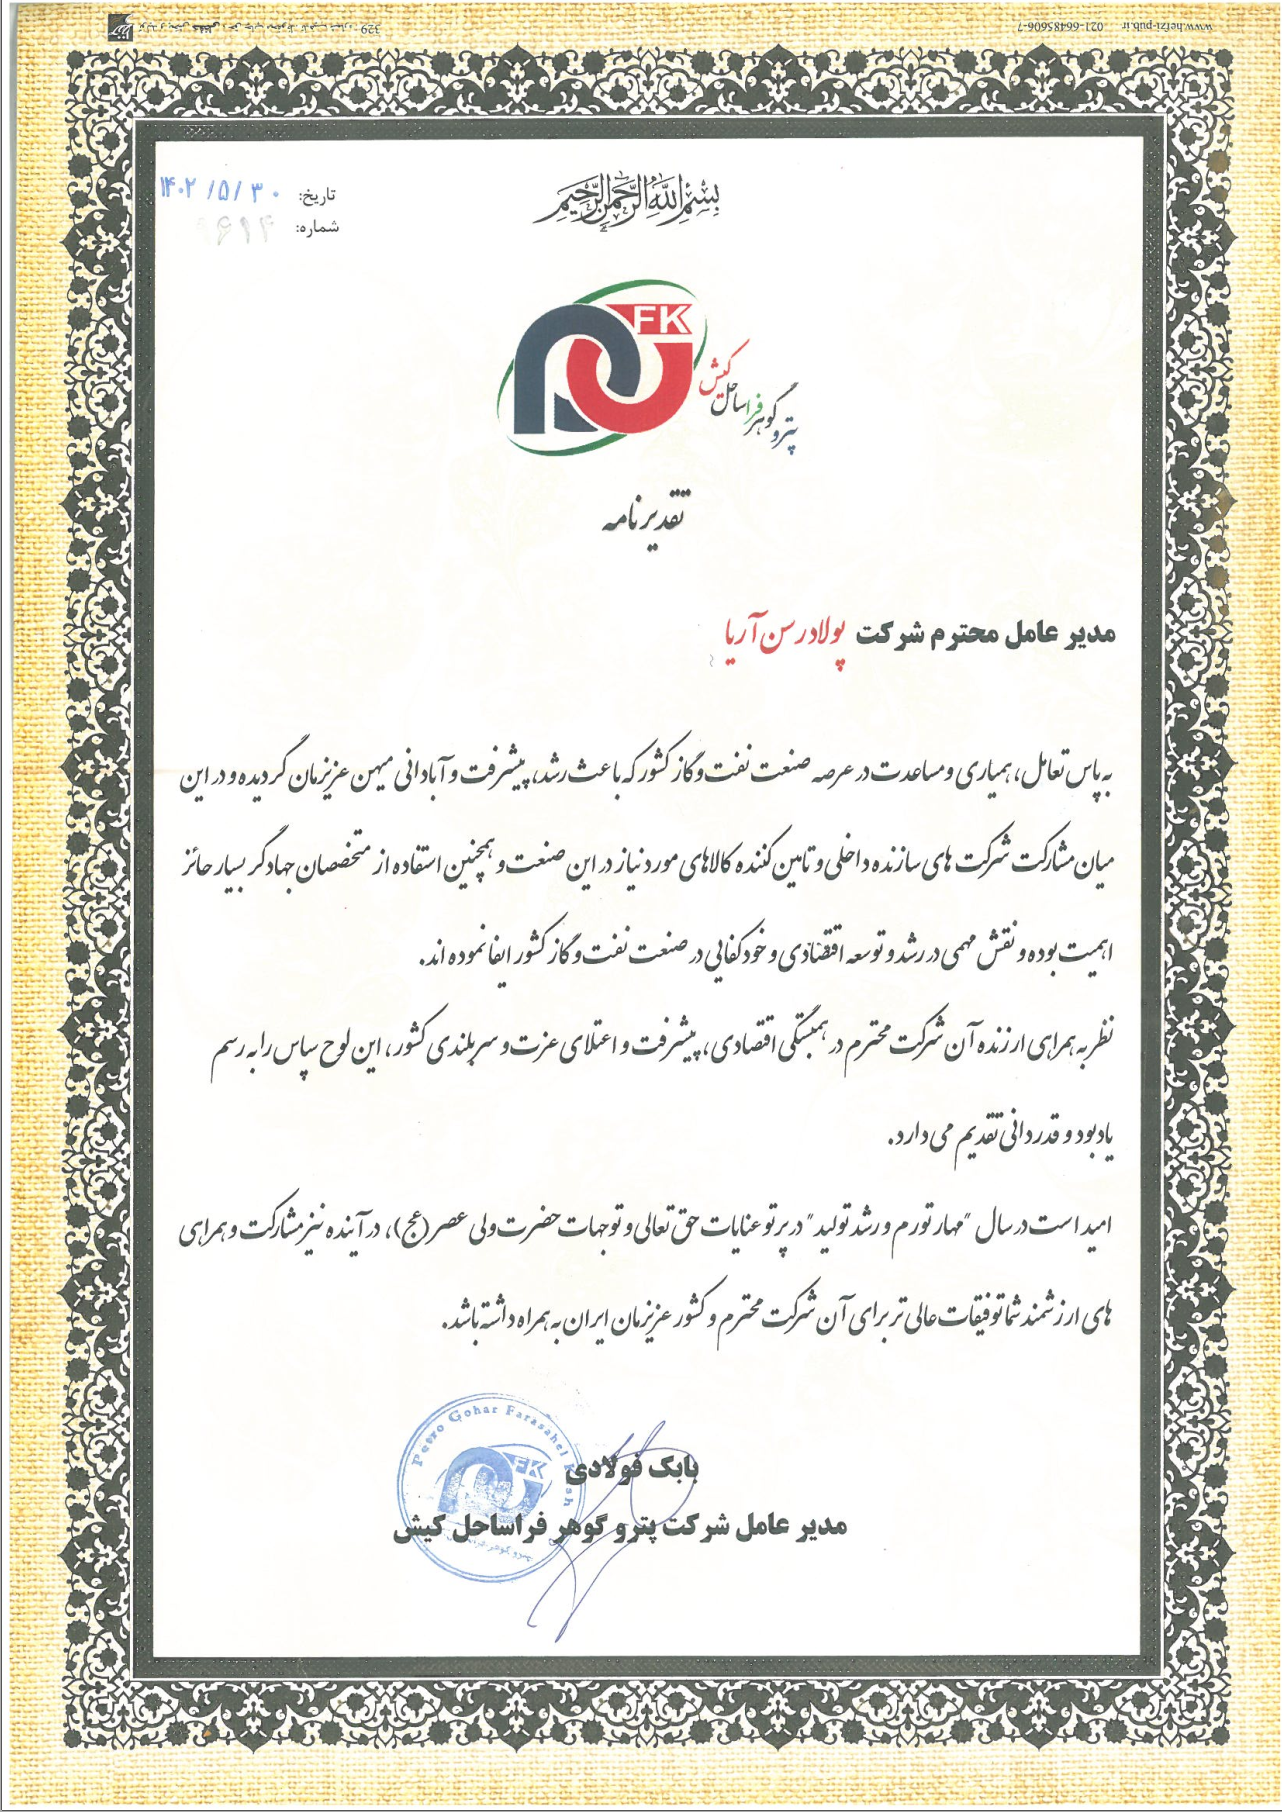 www.hefzi-pub.ir 021-66485606-7
329
بسم الله الرحمن الرحیم
تاریخ: ۱۴۰۲/۵/۳۰
شماره:
FK
پترو گوهر فراساحل کیش
تقدیرنامه
مدیر عامل محترم شرکت پولاد رسن آریا
به پاس تعامل، همیاری و مساعدت در عرصه صنعت نفت و گاز کشور که باعث رشد، پیشرفت و آبادانی میهن عزیزمان گردیده و در این
میان مشارکت شرکت های سازنده داخلی و تامین کننده کالاهای مورد نیاز در این صنعت و همچنین استفاده از متخصصان جهادگر بسیار حائز
اهمیت بوده و نقش مهمی در رشد و توسعه اقتصادی و خودکفایی در صنعت نفت و گاز کشور ایفا نموده اند.
نظر به همراهی ارزنده آن شرکت محترم در همبستگی اقتصادی، پیشرفت و اعتلای عزت و سربلندی کشور، این لوح سپاس را به رسم
یادبود و قدردانی تقدیم می دارد.
امید است در سال "مهار تورم و رشد تولید" در پرتو عنایات حق تعالی و توجهات حضرت ولی عصر (عج)، در آینده نیز مشارکت و همراهی
های ارزشمند شما توفیقات عالی تر برای آن شرکت محترم و کشور عزیزمان ایران به همراه داشته باشد.
Petro Gohar Farasahel Kish
FK
بابک فولادی
مدیر عامل شرکت پترو گوهر فراساحل کیش